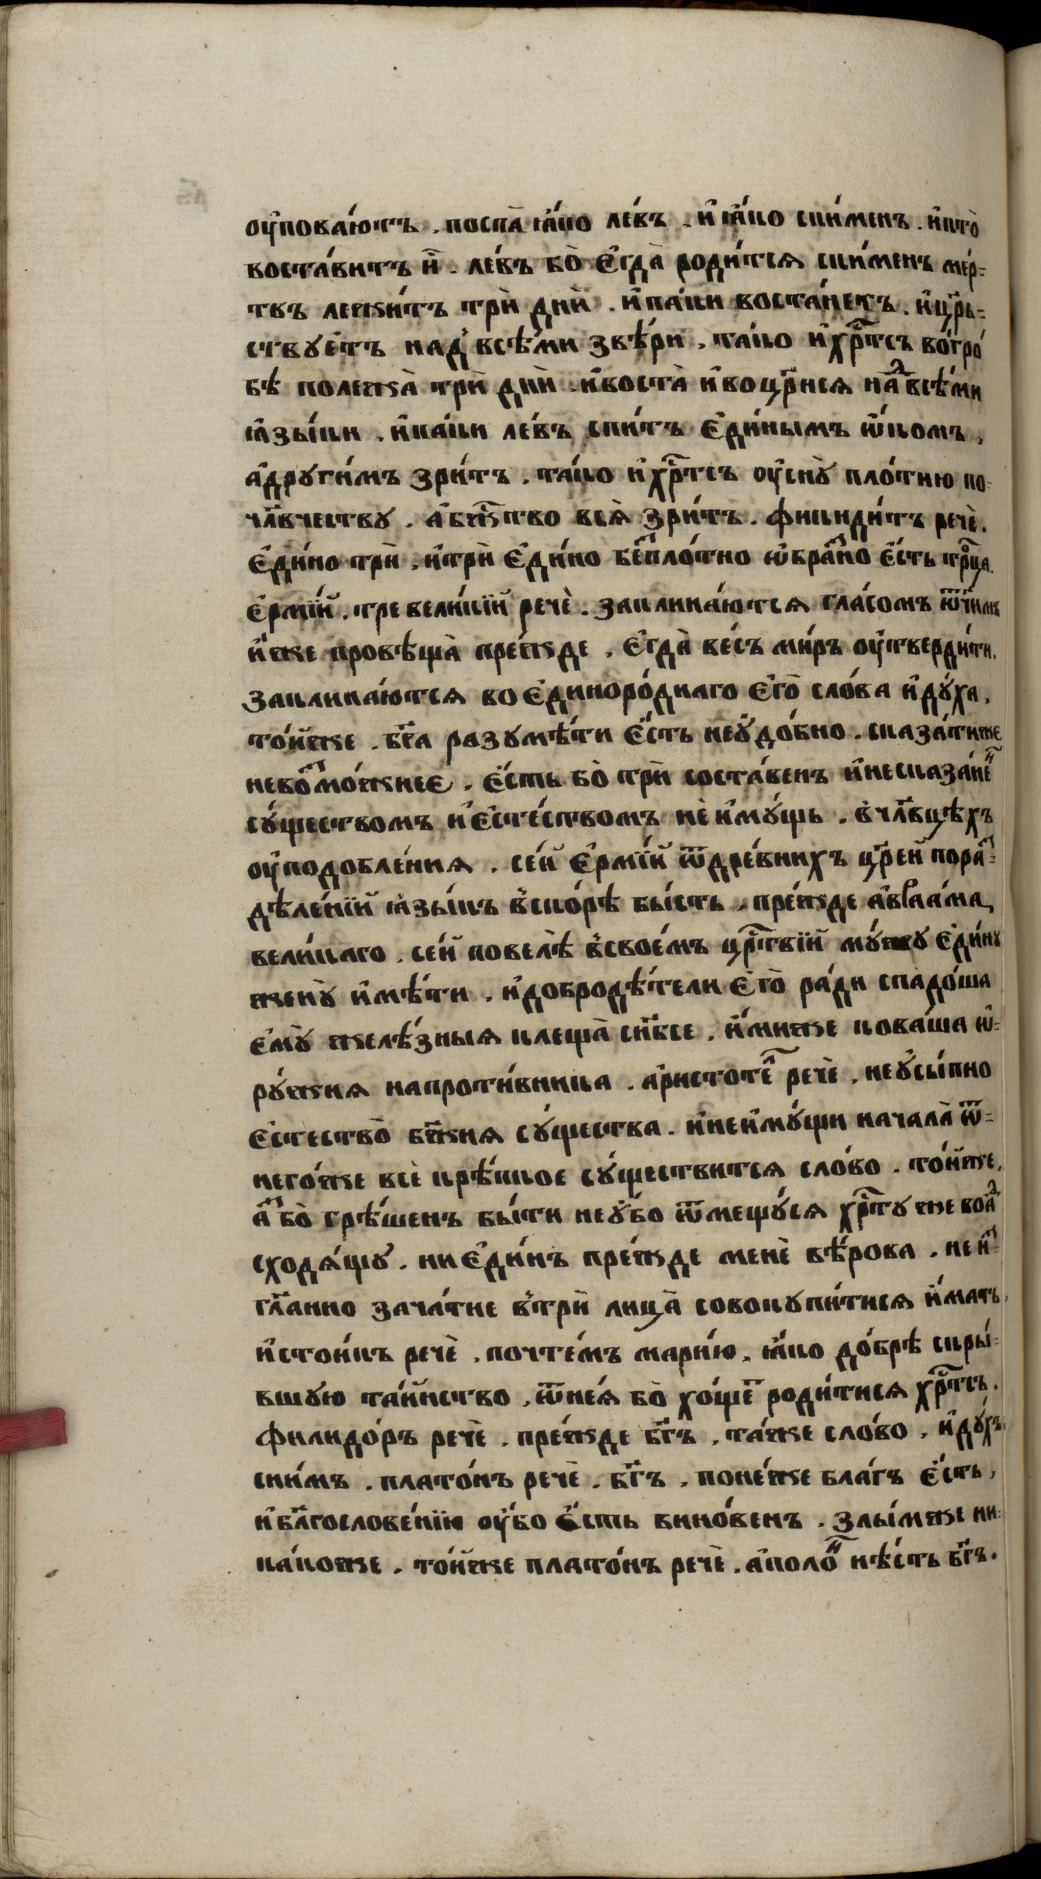 оу҆пова́ютъ . поспа̀ ꙗ҆́ко ле́въ . и҆ ꙗ҆́ко ски́менъ . и҆кто̀
воста́витъ и҆̀ . ле́въ бо̀ є҆гда̀ роди́тсѧ ски́менъ ме́р-
твъ лежи́тъ трѝ днѝ . и҆па́ки воста́нетъ . и҆цр҃ь-
ствуетъ над̾ всѣ́ми звѣ́ри . та́ко и҆хрⷭ҇тсъ во́гро
бѣ полежа̀ трѝ днѝ . и҆воста̀ и҆воцр҃исѧ наⷣ всѣ́ми
ꙗ҆зы́ки . и҆па́ки ле́въ спи́тъ є҆ди́нымъ ѻ҆́комъ ,
а҆други́мъ зри́тъ . та́ко и҆хрⷭ҇тсъ оу҆снꙋ̀ пло́тию по-
чл҃вчеству . а҆бж҃тво всѧ̀ зри́тъ . фукиди́тъ речѐ .
є҆ди́но трѝ , и҆трѝ є҆ди́но беⷥпло́тно ѡ҆браⷥно є҆́сть трⷪ҇ца .
є҆рмі́й . тревели́кїй речѐ . заклина́ютсѧ гла́сомъ ѿч҃имъ
и҆́же провѣща̀ пре́жде , є҆гда̀ ве́съ ми́ръ оу҆тверди́ти .
заклина́ютсѧ во є҆диноро́днаго є҆гѡ̀ сло́ва и҆дꙋ́ха .
то́йже . бг҃а разумѣ́ти є҆́сть неꙋдо́бно . сказа́тиже
невоⷥмо́жнее . є҆́сть бо̀ трѝ соста́венъ и҆несказа́неⷩ
сꙋ́ществомъ и҆є҆сте́ствомъ не и҆мꙋ́щь . в̾чл҃вцѣ́хъ
оу҆подобле́ниѧ . се́й є҆рмі́й ѿдре́внихъ цр҃ей пораⷥ-
дѣле́нїй ꙗ҆зы́къ в̾ско́рѣ бы́сть , пре́жде а҆враа́ма
вели́каго . се́й повелѣ̀ в̾свое́мъ црⷭ҇твїй мꙋ́жу є҆ди́нꙋ
женꙋ̀ и҆мѣ́ти . и҆доброде́тели є҆гѡ̀ ра́ди спадо́ша
є҆мꙋ̀ желѣ́зныѧ клеща̀ снб҃се . и҆́миже кова́ша ѻ҆-
рꙋ́жиѧ напроти́вника . а҆ристотеⷧ речѐ . неꙋсы́пно
є҆стество̀ бж҃иѧ сꙋ́щества . и҆неи҆мꙋ́щи нача́ла̀ ѿ-
него́же всѐ крѣ́пкое сꙋ́ществитсѧ сло́во . то́йже ,
а҆́ⷥ бо̀ грѣ́шенъ бы́ти неꙋ҆бо ѿмещꙋ́сѧ хрⷭ҇ту же воаⷣ
сходѧ́щꙋ . ни є҆ди́нъ пре́жде менѐ вѣ́рова . не иⷥ
гл҃анно зача́тие в̾трѝ лица̀ совокупи́тисѧ и҆́мать .
и҆стои́къ речѐ . почте́мъ мари́ю , ꙗ҆́ко до́брѣ скры́-
вшую та́инство , ѿнеѧ̀ бо̀ хо́щеⷮ роди́тисѧ хрⷭ҇тсъ .
филидо́ръ речѐ . пре́жде бг҃ъ , та́же сло́во , и҆дꙋ́хъ
сни́мъ . плато́нъ речѐ . бг҃ъ . поне́же бла́гъ є҆́сть ,
и҆бл҃гослове́нїю оу҆́бо є҆́сть вино́венъ . злы́мже ни-
ка́коже . то́йже плато́нъ речѐ . а҆поло́ⷩ нѣ́сть бг҃ъ .